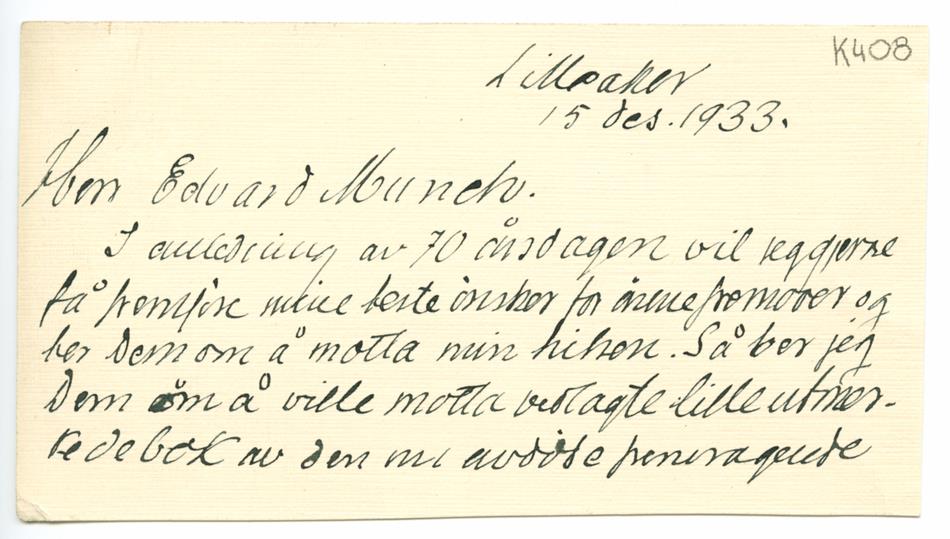 K408
Lilleaker
15 des. 1933.
Herr Edvard Munch.
I anledning av 70 årsdagen vil jeg gjerne
få fremføre mine beste ønsker for årene fremover og
ber Dem om å motta min hilsen. Så ber jeg
Dem om å ville motta vedlagte lille utmer-
kede bok av den nu avdøde fremragende